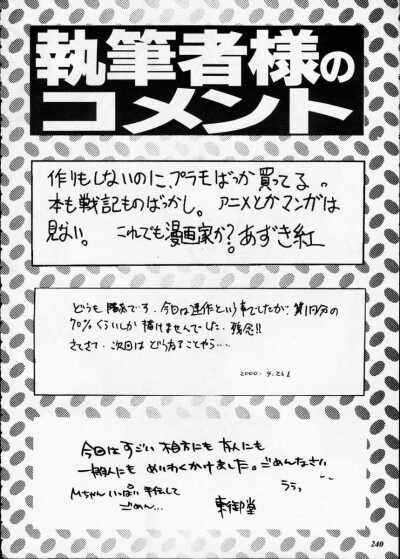 執筆者様の
コメント
作りもしないのに、プラモばっか買ってる。
本も戦記ものばっかし。アニメとかマンガは
見ない。 これでも漫画家か? あずき紅
どうも 陽気です。今回は連作という事でしたが、第1回分の
70%くらいしか描けませんでした。残念!!
さてさて、次回はどうなることやら…
2000.
今回はすごい相方にも 友人にも
一般人にも めいわくかけました。ごめんなさい
Mちゃん いっぱい 手伝して
ごめん…
うぅっ
東御堂
240